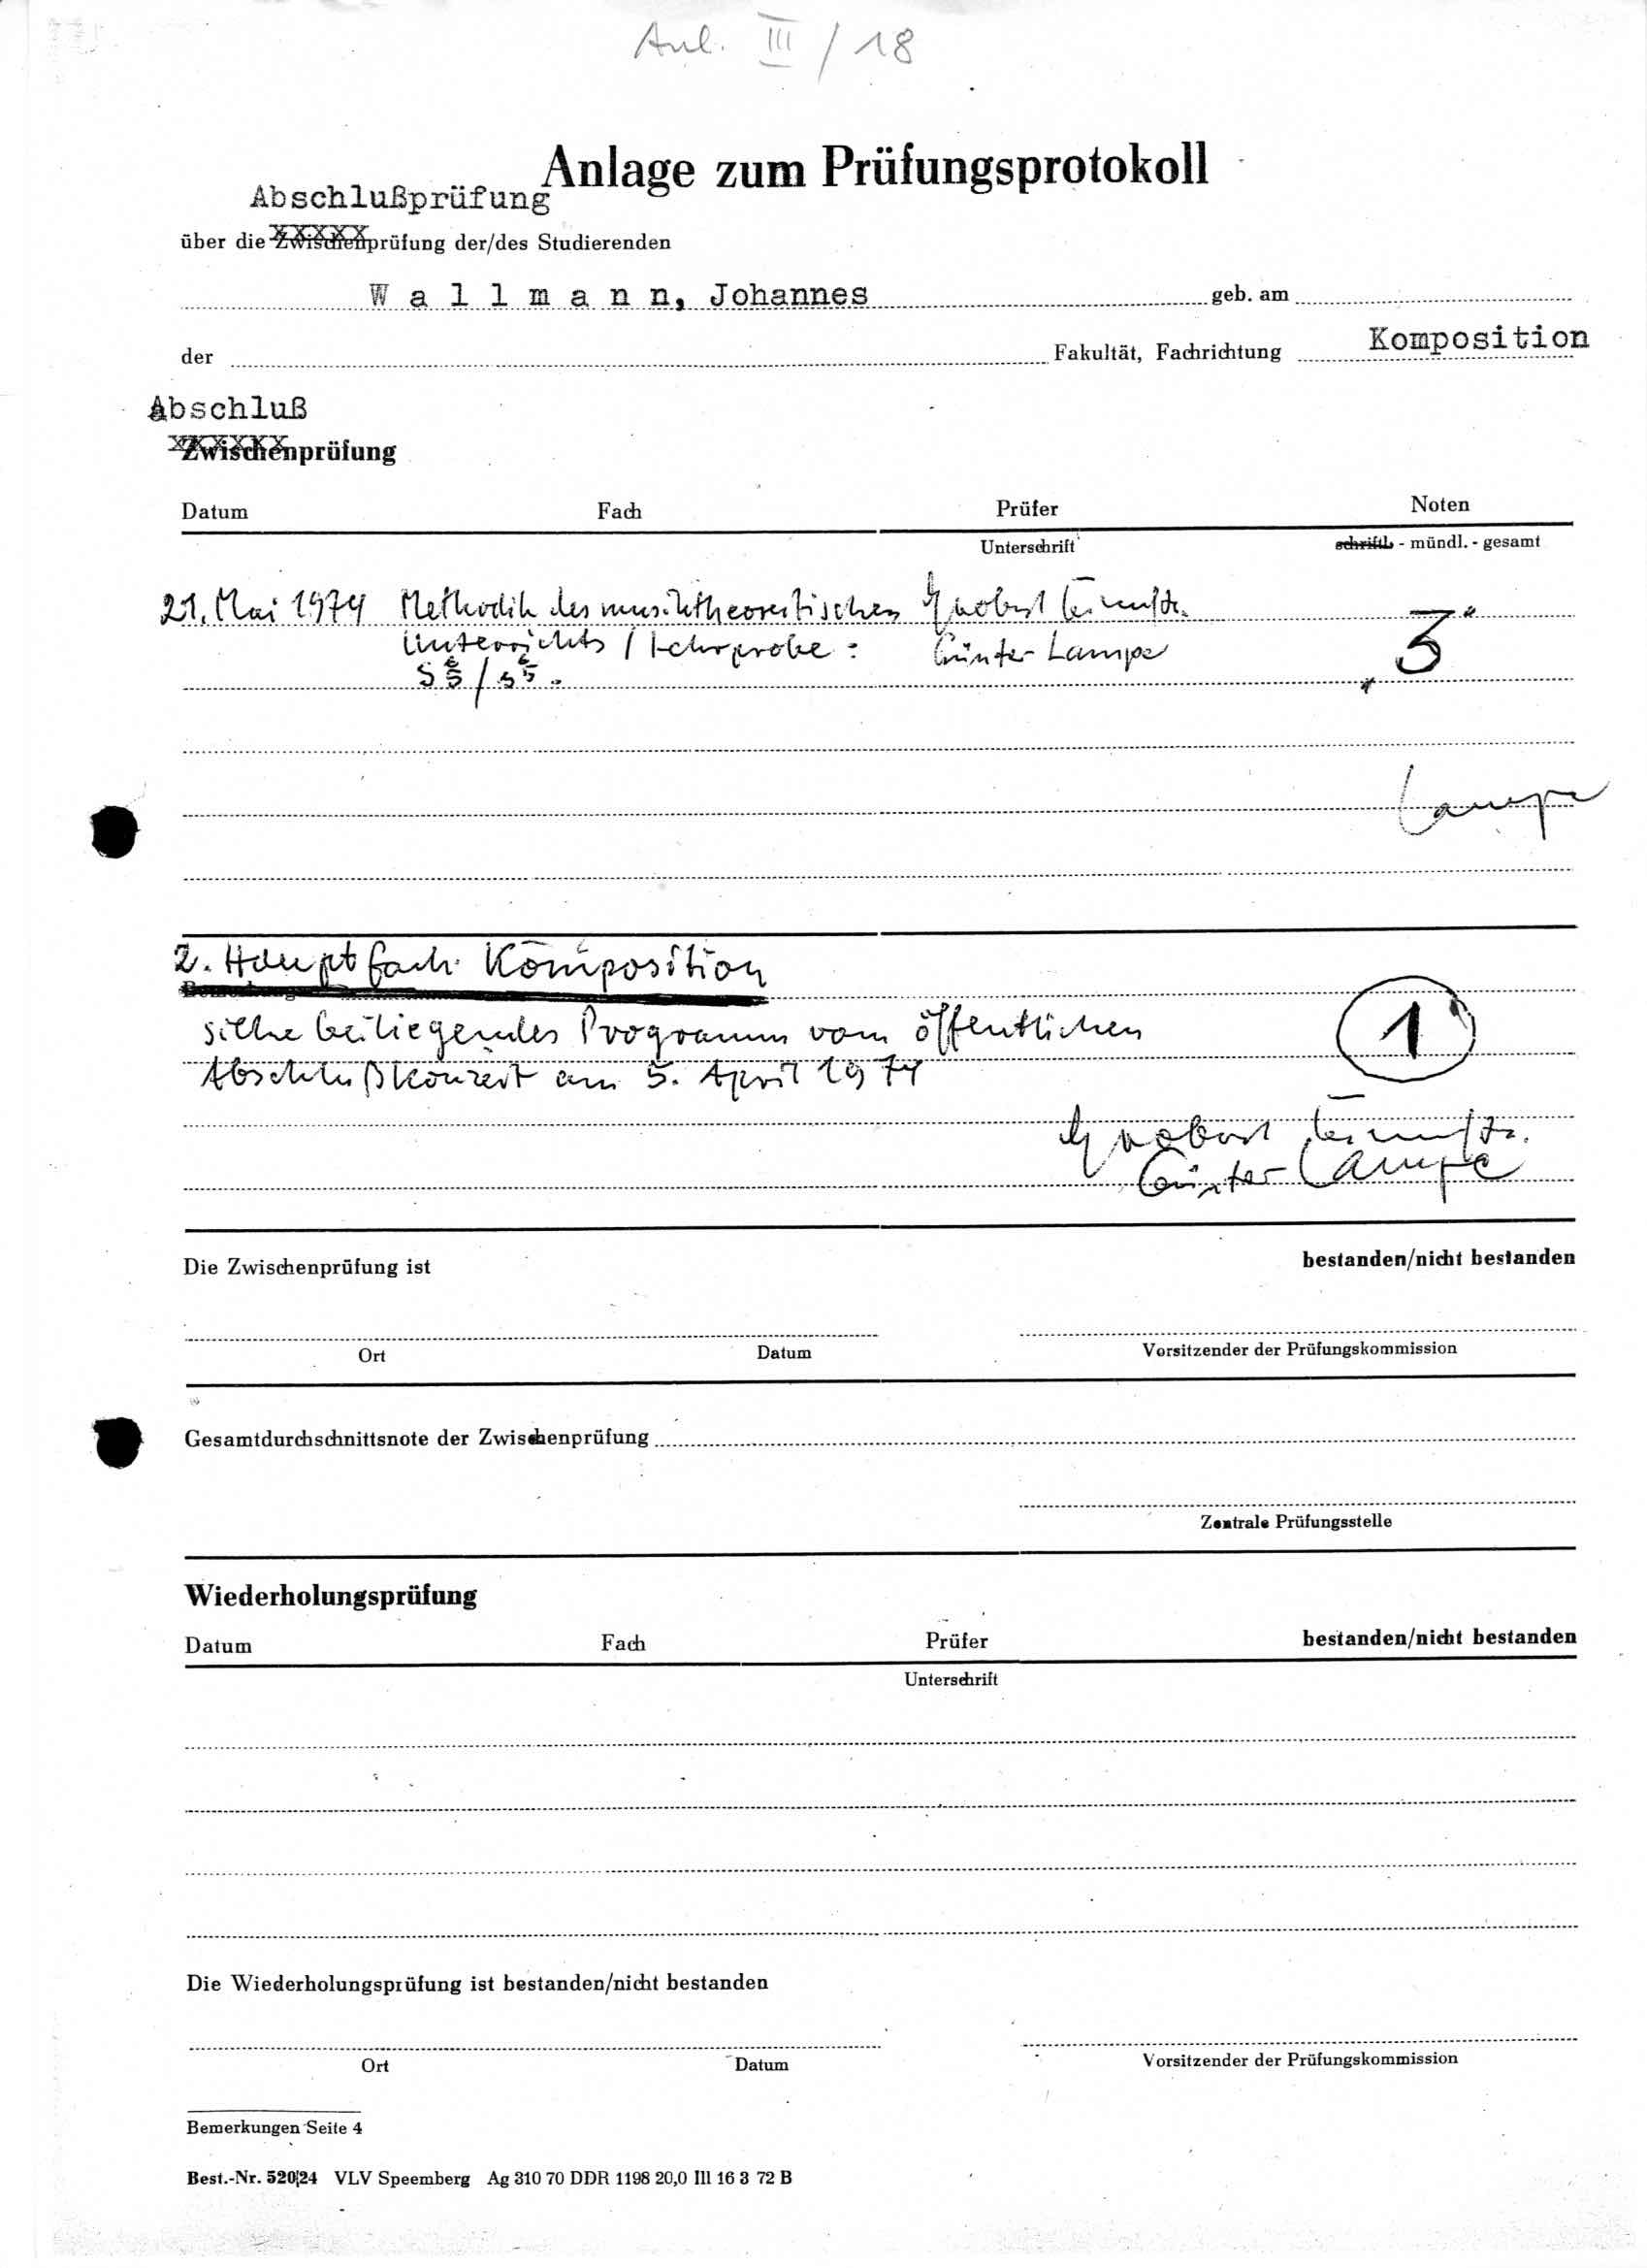 Anl. III / 18
Anlage zum Prüfungsprotokoll
Abschlußprüfung
über die Zwischenprüfung der/des Studierenden
W a l l m a n n, Johannes geb. am
der Fakultät, Fachrichtung Komposition
Abschluß
Zwischenprüfung
Datum Fach Prüfer Noten
Unterschrift schriftl. - mündl. - gesamt
21. Mai 1974 Methodik des musiktheoretischen
Unterrichts / Lehrprobe: Günter Lampe „3“
Lampe
2. Hauptfach Komposition
siehe beiliegendes Programm vom öffentlichen 1
Abschlußkonzert am 5. April 1974
Günter Lampe
Die Zwischenprüfung ist bestanden/nicht bestanden
Ort Datum Vorsitzender der Prüfungskommission
Gesamtdurchschnittsnote der Zwischenprüfung
Zentrale Prüfungsstelle
Wiederholungsprüfung
Datum Fach Prüfer bestanden/nicht bestanden
Unterschrift
Die Wiederholungsprüfung ist bestanden/nicht bestanden
Ort Datum Vorsitzender der Prüfungskommission
Bemerkungen Seite 4
Best.-Nr. 520/24 VLV Speemberg Ag 310 70 DDR 1198 20,0 III 16 3 72 B